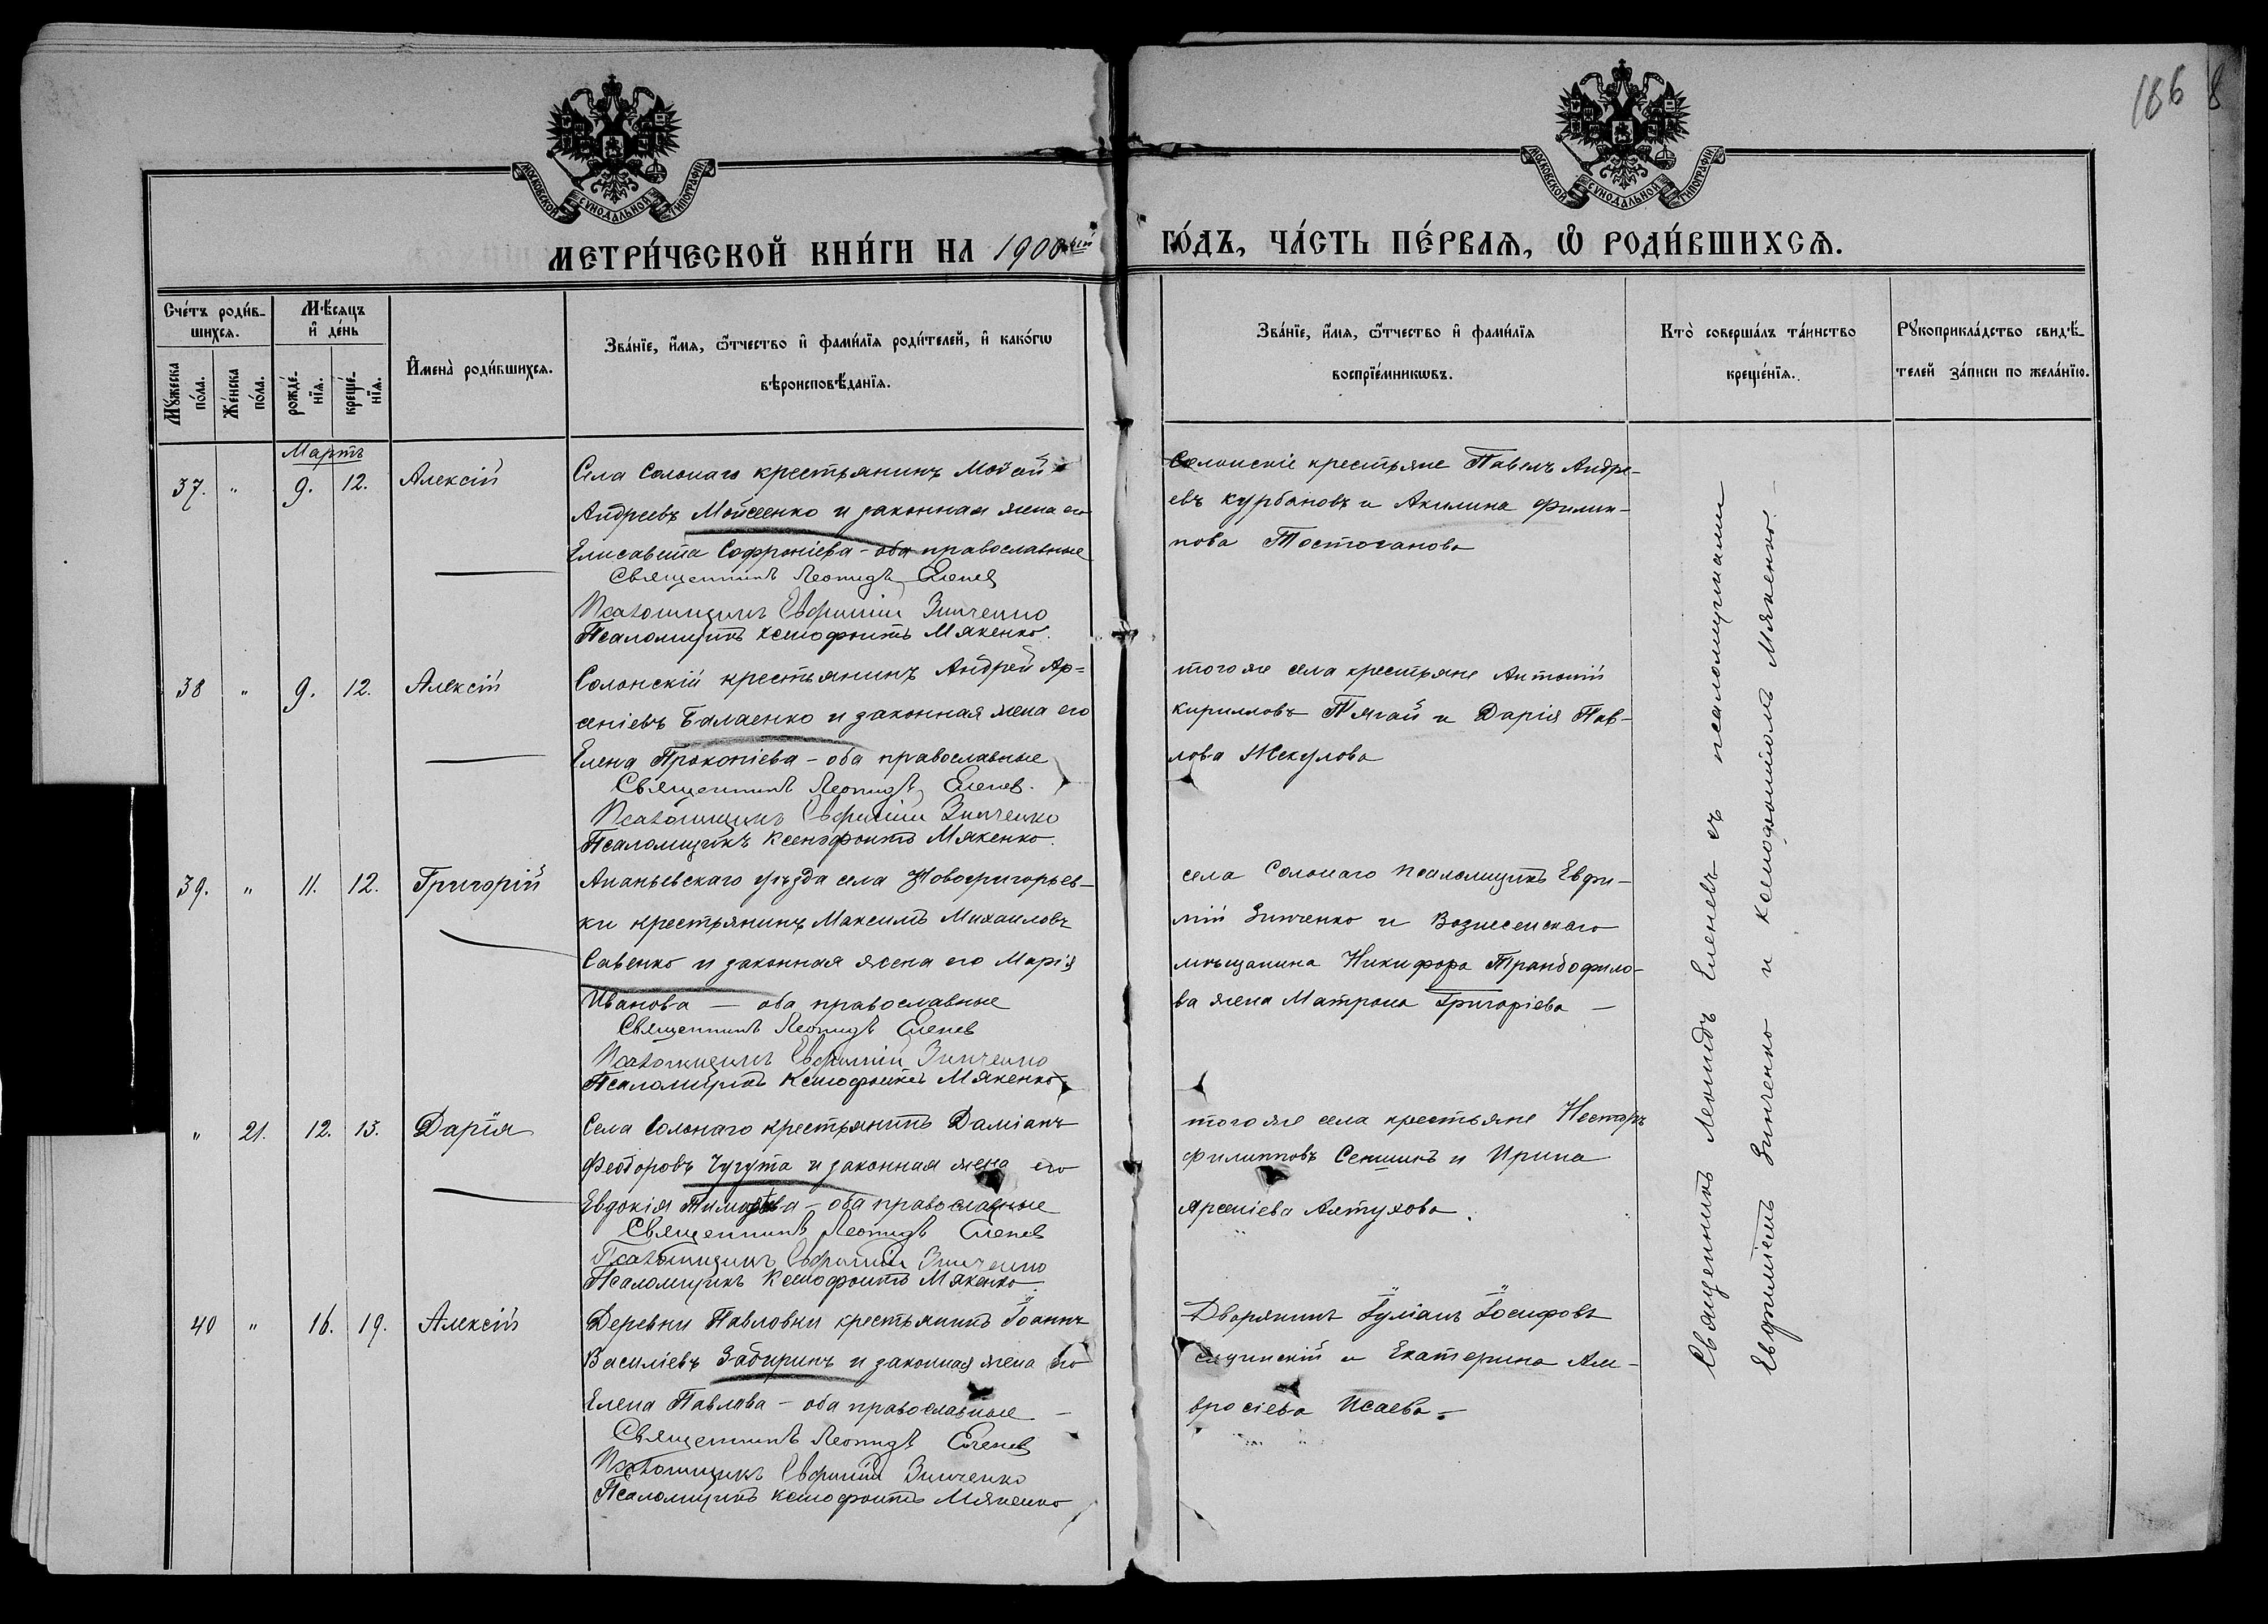 186
МОСКОВСКОЙ СУНОДАЛЬНОЙ ТИПОГРАФІИ
МОСКОВСКОЙ СУНОДАЛЬНОЙ ТИПОГРАФІИ
МЕТРИ́ЧЕСКОЙ КНИ́ГИ НА 1900ый ГО́ДЪ, ЧА́СТЬ ПЕ́РВАѦ, Ѡ РОДИ́ВШИХСѦ.
Сче́тъ роди́в-
шихсѧ.
Мѣ́сѧцъ
и҆ де́нь
Мꙋ́жеска
по́ла.
Же́нска
по́ла.
рожде́-
нїѧ.
креще́-
нїѧ.
И҆мена̀ роди́вшихсѧ.
Зва́нїе, и҆́мѧ, ѻ҆́тчество и҆ фами́лїѧ роди́телей, и҆ како́гѡ
вѣроисповѣ́данїѧ.
Зва́нїе, и҆́мѧ, ѻ҆́тчество и҆ фами́лїѧ
воспрїе́мникѡвъ.
Кто̀ соверша́лъ та́инство
креще́нїѧ.
Рꙋкоприкла́дство свидѣ́-
телей за́писи по жела́нїю.
Мартъ
37. " 9. 12. Алексій
Села Солонаго крестьянинъ Мойсей
Андреевъ Мойсеенко и законная жена его
Елисавета Софроніева - оба православные
Священникъ Леонидъ Еленев
Псаломщикъ Евфимій Зинченко
Псаломщикъ Ксенофонтъ Мякенко.
Солонскіе крестьяне Павелъ Андре-
евъ Курбановъ и Акилина Филип-
пова
38 " 9. 12. Алексій
Солонскій крестьянинъ Андрей Ар-
сеніевъ Баланенко и законная жена его
Елена Прокопіева - оба православные
Священникъ Леонидъ Еленев.
Псаломщикъ Евфимій Зинченко
Псаломщикъ Ксенофонтъ Мякенко.
того же села крестьяне Антоній
Кирилловъ Тягай и Дарія Пав-
лова Жекулова
39. " 11. 12. Григорій
Ананьевскаго уѣзда села Новогригорьев-
ки крестьянинъ Максимъ Михаиловъ
Савенко и законная жена его Марія
Иванова — оба православные
Священникъ Леонидъ Еленев
Псаломщикъ Евфимій Зинченко
Псаломщикъ Ксенофонтъ Мякенко
села Солонаго псаломщикъ Евфи-
мій Зинченко и Вознесенскаго
мѣщанина Никифора Трандофило-
ва жена Матрона Григоріева —
" 21. 12. 13. Дарія
Села Солонаго крестьянинъ Даміанъ
Феодоровъ Чугута и законная жена его
Евдокія - оба православные
Священникъ Леонидъ Еленев
Псаломщикъ Евфимій Зинченко
Псаломщикъ Ксенофонтъ Мякенко.
того же села крестьяне Несторъ
Филипповъ и Ирина
Арсеніева Алтухова.
40 " 16. 19. Алексій
Деревни Павловки крестьянинъ Іоаннъ
Василіевъ Забиринъ и законная жена его
Елена Павлова - оба православные —
Священникъ Леонидъ Еленев
Псаломщикъ Евфимій Зинченко
Псаломщикъ Ксенофонтъ Мякенко
Дворянинъ Іуліанъ Іосифовъ
и Екатерина Ам-
вросіева Исаева —
Священникъ Леонидъ Еленевъ съ псаломщиками
Евфиміемъ Зинченко и Ксенофонтомъ Мякенко. —